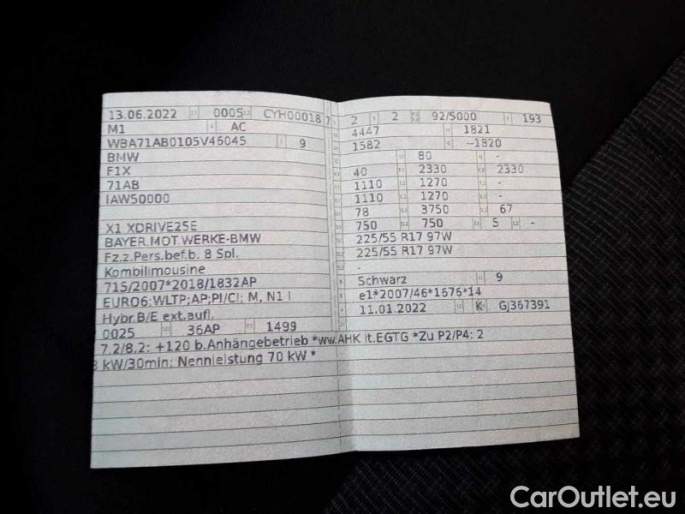 13.06.2022 0005 CYH00018 7
M1 AC
WBA71AB0105V46045 9
BMW
F1X
71AB
IAW50000
X1 XDRIVE25E
BAYER.MOT.WERKE-BMW
Fz.z.Pers.bef.b. 8 Spl.
Kombilimousine
715/2007*2018/1832AP
EURO6;WLTP;AP;PI/CI; M, N1 I
Hybr.B/E ext.aufl.
0025 36AP 1499
7.2/8.2: +120 b.Anhängebetrieb *ww.AHK lt.EGTG *Zu P2/P4: 2
kW/30min: Nennleistung 70 kW *
2 2 92/5000 193
4447 1821
1582 -1820
80 -
40 2330 2330
1110 1270 -
1110 1270 -
78 3750 67
750 750 5 -
225/55 R17 97W
225/55 R17 97W
-
Schwarz 9
e1*2007/46*1676*14
11.01.2022 K GJ367391
CarOutlet.eu